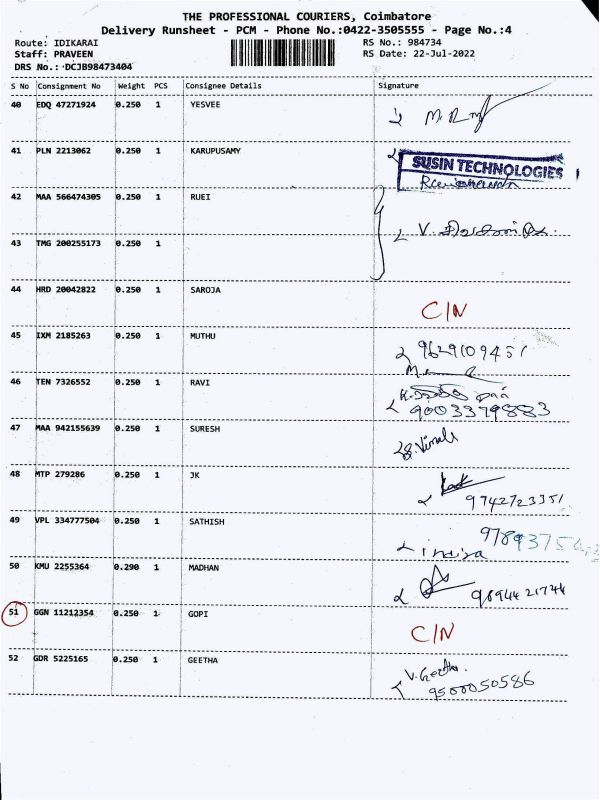 THE PROFESSIONAL COURIERS, Coimbatore
Delivery Runsheet - PCM - Phone No.:0422-3505555 - Page No.:4
Route: IDIKARAI RS No.: 984734
Staff: PRAVEEN RS Date: 22-Jul-2022
DRS No.: DCJB98473404
S No Consignment No Weight PCS Consignee Details Signature
40 EDQ 47271924 0.250 1 YESVEE
41 PLN 2213062 0.250 1 KARUPUSAMY
SUSIN TECHNOLOGIES
42 MAA 566474305 0.250 1 RUEI
43 TMG 200255173 0.250 1
44 HRD 20042822 0.250 1 SAROJA
C/N
45 IXM 2185263 0.250 1 MUTHU
9629109451
46 TEN 7326552 0.250 1 RAVI
9003379883
47 MAA 942155639 0.250 1 SURESH
48 MTP 279286 0.250 1 JK
9742723351
49 VPL 334777504 0.250 1 SATHISH
50 KMU 2255364 0.290 1 MADHAN
9894421744
51 GGN 11212354 0.250 1 GOPI
C/N
52 GDR 5225165 0.250 1 GEETHA
V. Geetha
9500050586